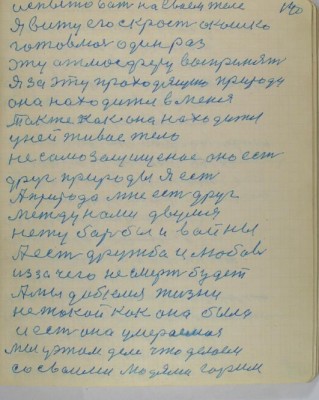 испытовать на своем теле 140
Я вижу его скрост окошко
готовлюся один раз
эту атмосферу воспринят
Я за эту проходящию природу
она находится в меня
Также как она находится
у ней живае тело
не само защищенае оно ест
друг природы Я ест
А природа мне ест друг
между нами двумя
нету барбы и вайны
А ест дружба и любов
из за чего не смерт будет
А мы дабемся жизни
не такой как она была
и ест она умераемая
мы у этам деле что делаем
со своими людями горим